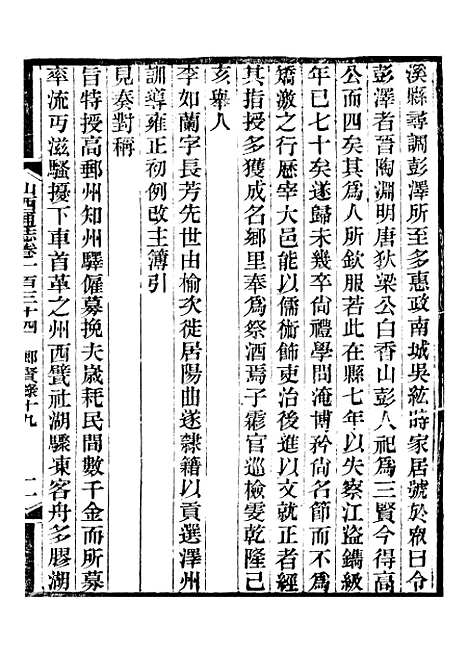 溪縣尋調彭澤所至多惠政南城吳紘蒔家居號於眾曰令
彭澤者晉陶淵明唐狄梁公白香山彭人祀爲三賢今得高
公而四矣其爲人所欽服若此在縣七年以失察江盜鐫級
年已七十矣遂歸未幾卒尚禮學問淹博矜尚名節而不爲
矯激之行歷宰大邑能以儒術飾吏治後進以文就正者經
其指授多獲成名鄉里奉爲祭酒焉子霱官巡檢雯乾隆己
亥舉人
李如蘭字長芳先世由榆次徙居陽曲遂隸籍以貢選澤州
訓導雍正初例改主簿引
見奏對稱
旨特授高郵州知州驛僱募挽夫歲耗民間數千金而所募
率流丐滋騷擾下車首革之州西甓社湖驟東客舟多膠湖
山西通志卷一百三十四 鄉賢錄十九 二